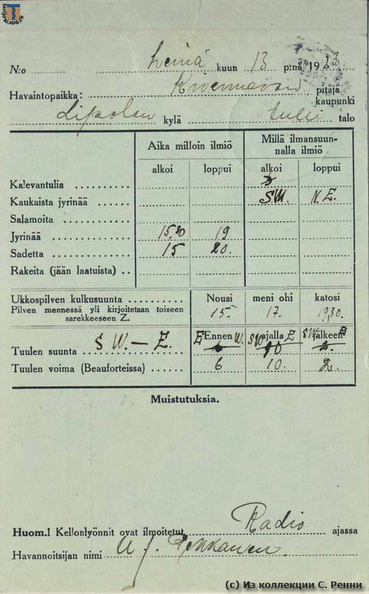 N:o Heinä kuun 13 p:nä 1933
Havaintopaikka: Kivennavan pitäjä
kaupunki
Lipolan kylä tulli talo
Aika milloin ilmiö Millä ilmansuun-
nalla ilmiö
alkoi loppui alkoi loppui
Kalevantulia
Kaukaista jyrinää SW. N.E.
Salamoita
Jyrinää 15,20 19
Sadetta 15 20.
Rakeita (jään laatuista)
Ukkospilven kulkusuunta Nousi meni ohi katosi
Pilven mennessä yli kirjoitetaan toiseen
sarekkeeseen Z. 15. 17. 1930.
SW.—Z. Ennen ajalla jälkeen
Tuulen suunta
Tuulen voima (Beauforteissa) 6 10. 2.
Muistutuksia.
Huom.! Kellonlyönnit ovat ilmoitetut Radio ajassa
Havannoitsijan nimi Pekkanen.
(c) Из коллекции С. Ренни